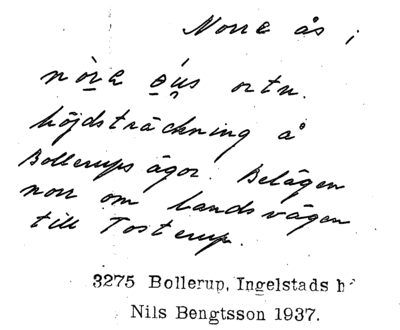 Norra ås ;
nòra ǫ́u̯s ortn.
höjdsträckning å
Bollerups ägor. Belägen
norr om landsvägen
till Tosterup.
3275 Bollerup, Ingelstads h
Nils Bengtsson 1937.